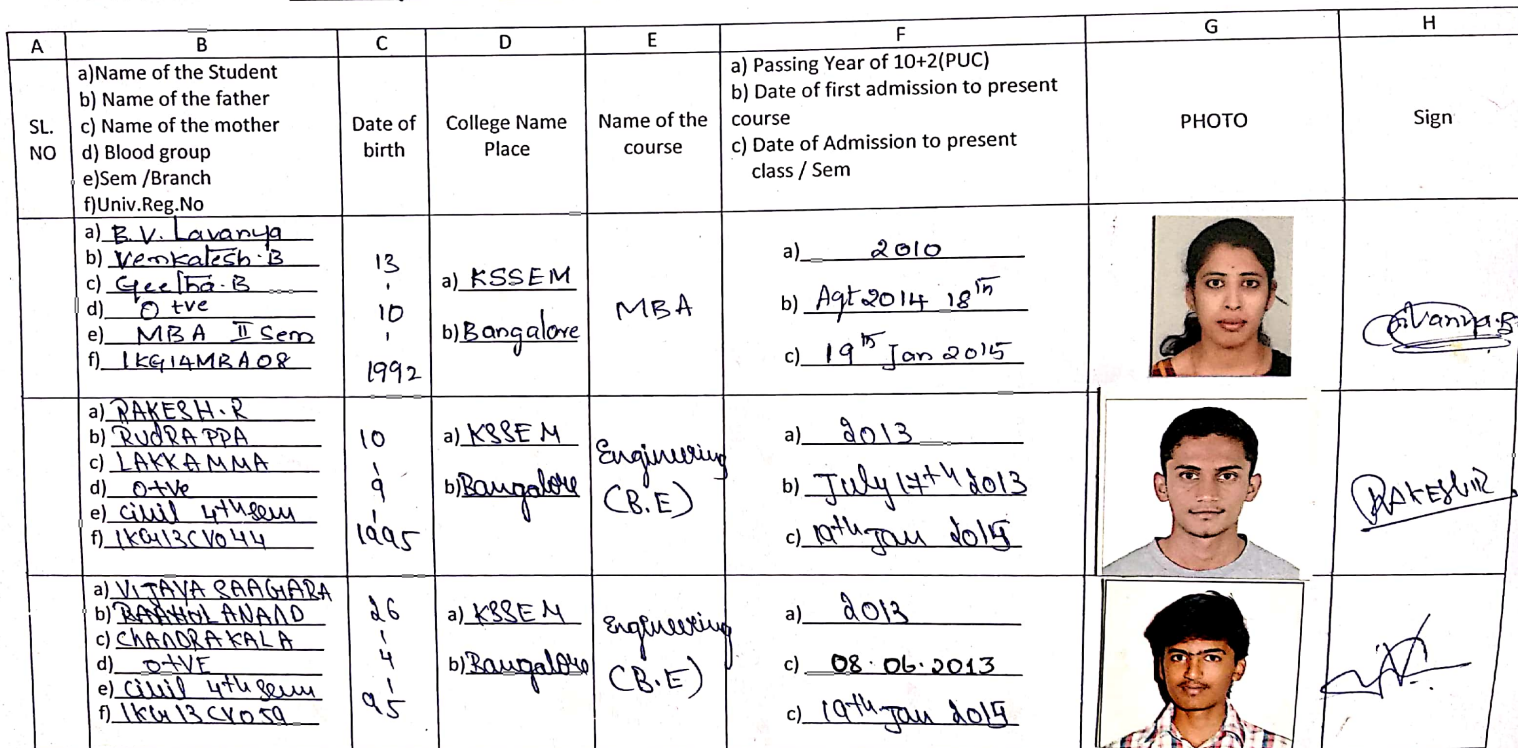 A B C D E F G H
SL. NO
a)Name of the Student
b) Name of the father
c) Name of the mother
d) Blood group
e)Sem /Branch
f)Univ.Reg.No
Date of birth
College Name Place
Name of the course
a) Passing Year of 10+2(PUC)
b) Date of first admission to present
course
c) Date of Admission to present
class / Sem
PHOTO
Sign
a) B.V. Lavanya
b) Venkatesh.B
c) Geetha.B
d) O +ve
e) MBA II Sem
f) 1KG14MBA08
13
10
1992
a) KSSEM
b) Bangalore
MBA
a) 2010
b) Agt 2014 18th
c) 19th Jan 2015
a) RAKESH.R
b) RUDRAPPA
c) LAKKAMMA
d) O+ve
e) civil 4th sem
f) 1KG13CV044
10
9
1995
a) KSSEM
b) Bangalore
Engineering
(B.E)
a) 2013
b) July 17th 2013
c) 19th Jan 2015
RAKESH.R
a) VIJAYA SAAGARA
b) ANAND
c) CHANDRAKALA
d) O+VE
e) civil 4th sem
f) 1KG13CV059
26
4
95
a) KSSEM
b) Bangalore
Engineering
(B.E)
a) 2013
c) 08.06.2013
c) 19th Jan 2015